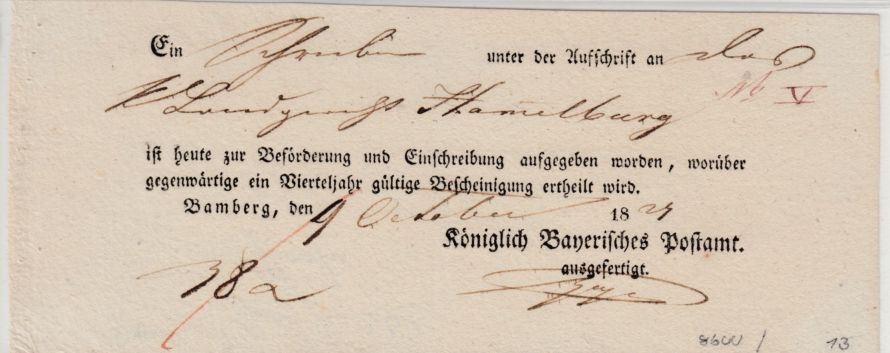 Ein Schreiben unter der Aufschrift an das
k. Landgericht Hamelburg
No V
ist heute zur Beförderung und Einschreibung aufgegeben worden, worüber
gegenwärtige ein Vierteljahr gültige Bescheinigung ertheilt wird.
Bamberg, den 9 October 18
Königlich Bayerisches Postamt.
ausgefertigt.
38
8600 / 13